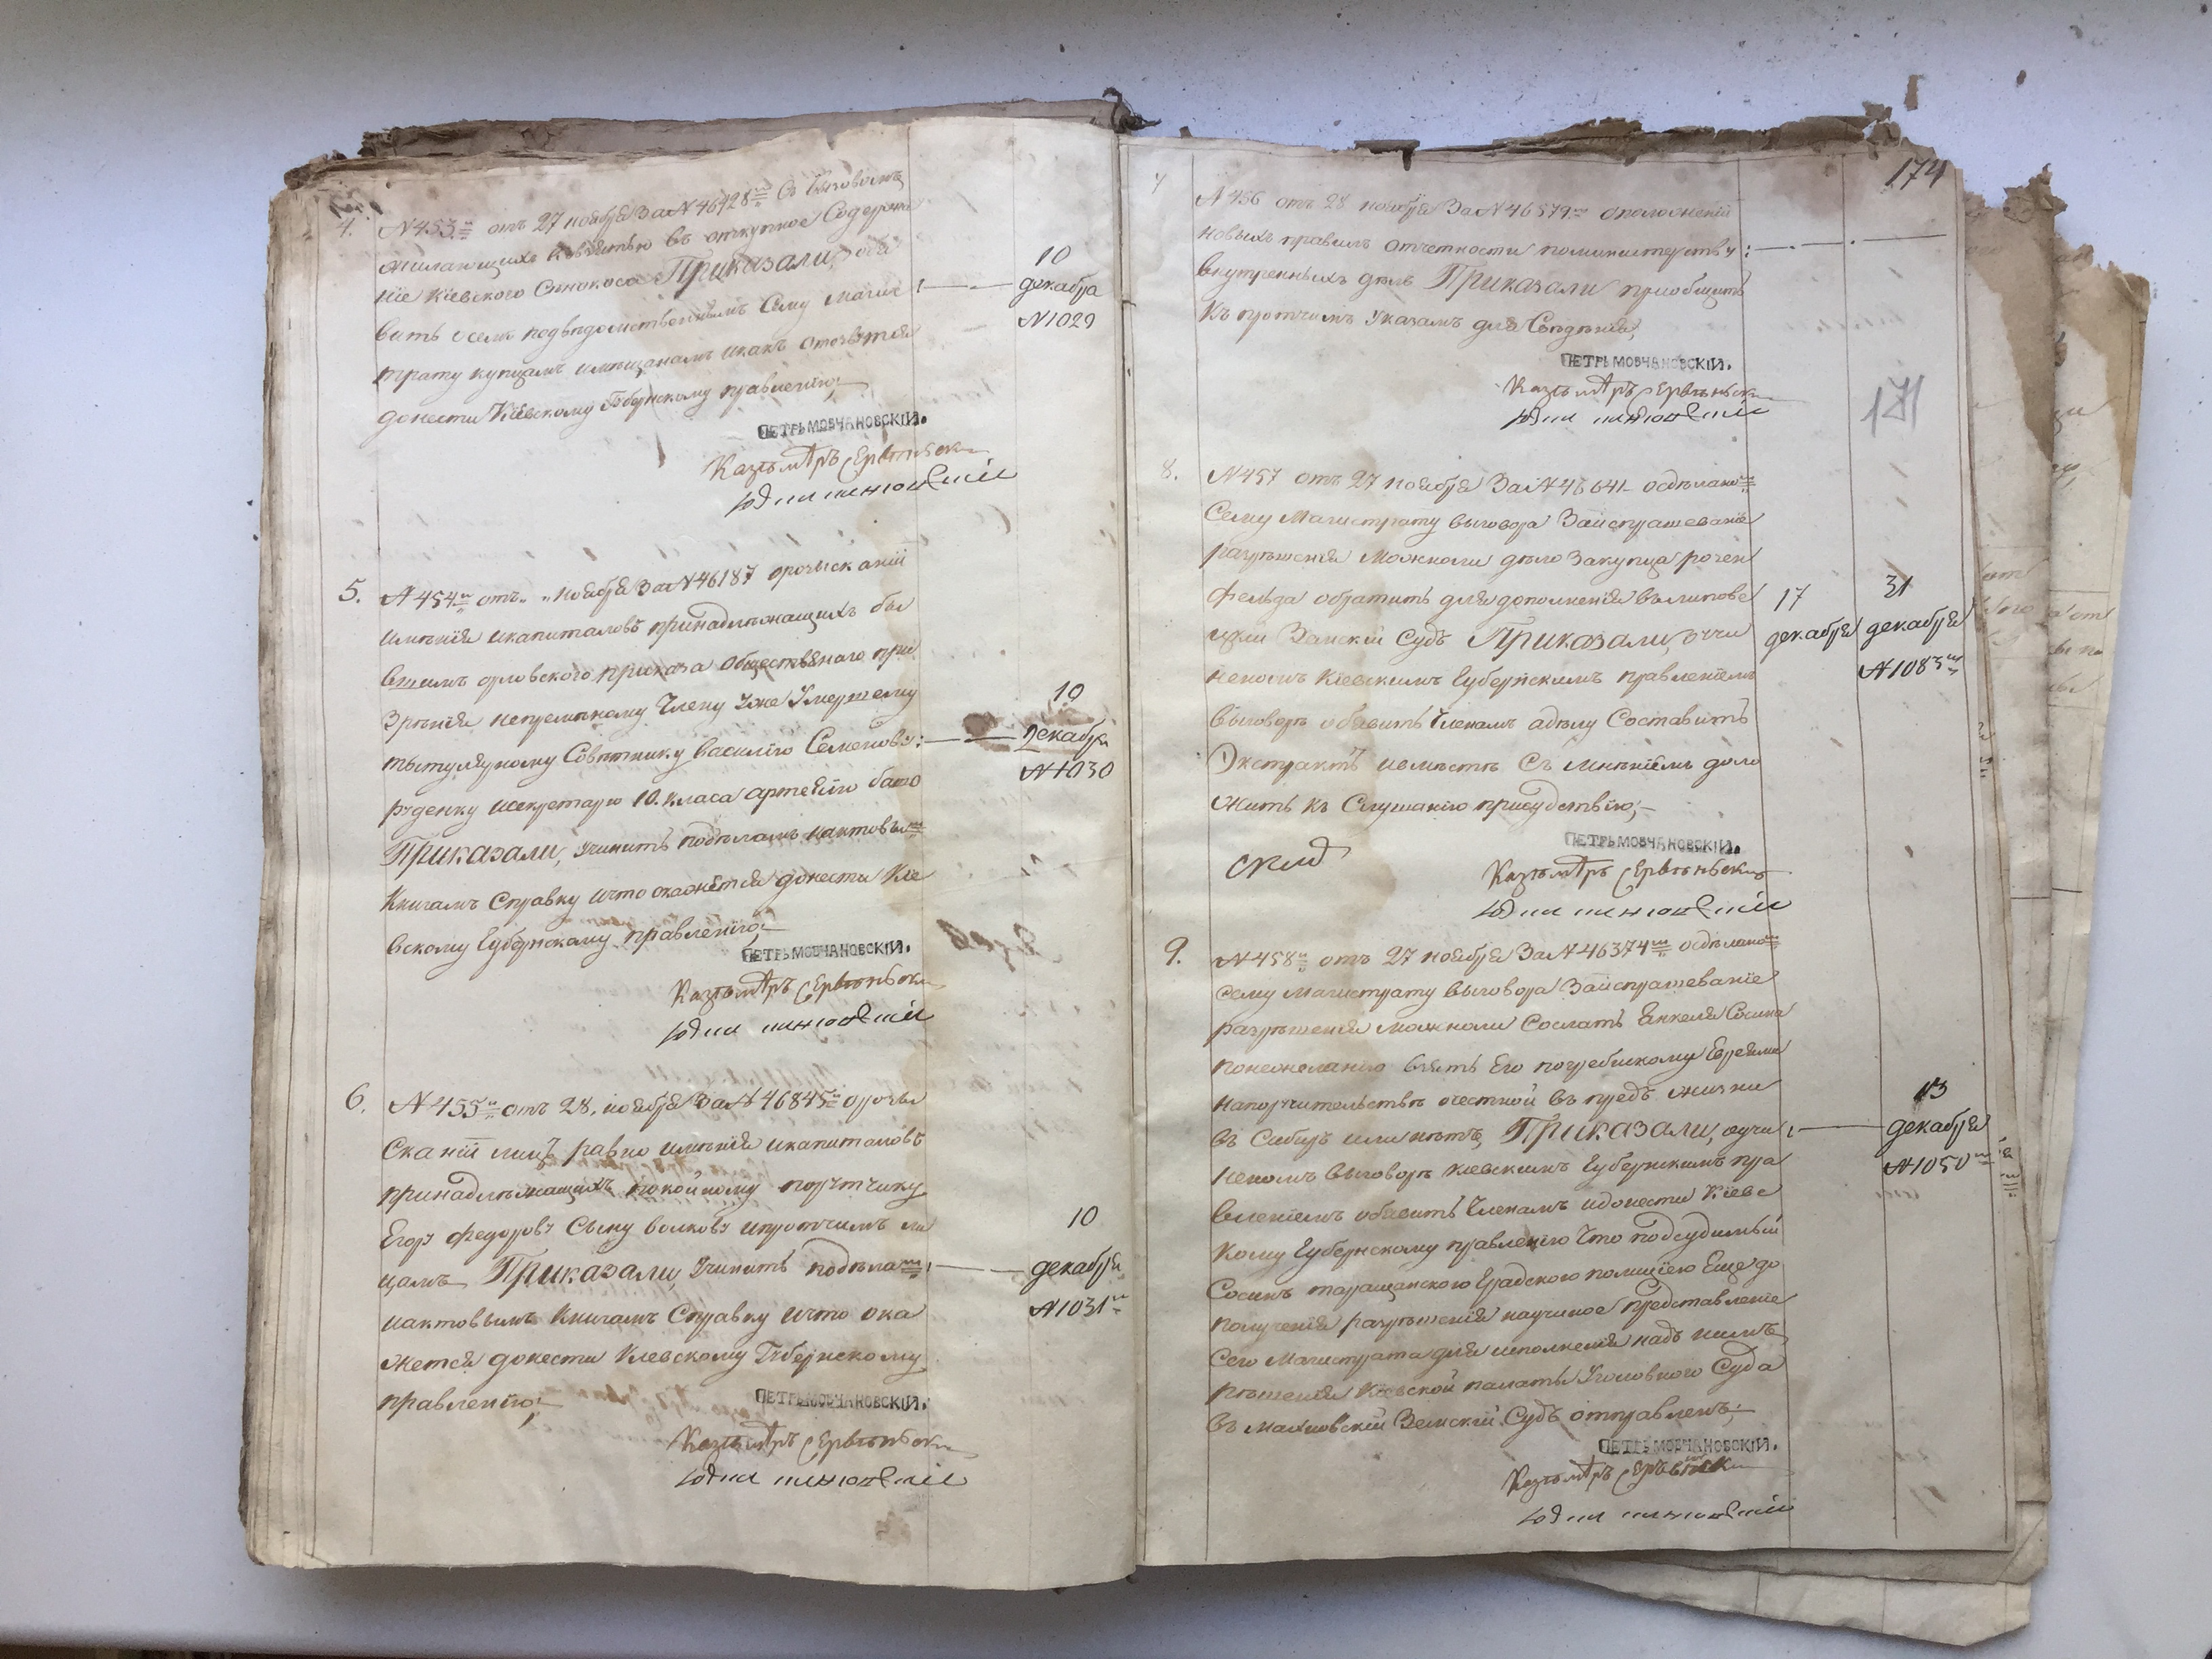 4. N 453.й отъ 27 ноября За N 46928й Съ Вызовомъ
желающихъ къ взятью въ откупное Содержа
ніе Кіевского Сѣнокоса Приказали, объя
вить о семъ подвѣдомственнымъ Сему Магис
трату купцамъ и мѣщанамъ и какъ отозвутся
донести Кіевскому Губернскому правленію;
10
декабра
N 1029
ПЕТРЪ МОВЧАНОВСКІЙ.
5. N 454й отъ „ „ ноября За N 46187 орозысканіи
имѣнія икапиталовъ принадлѣжащихъ бы
вшимъ орловского приказа Общественаго при
зрѣнія непремѣному Члену Уже Умершему
тытулярному Совѣтнику Василію Семенову:
рѣденку исекретарю 10. класа
Приказали, Учинить подѣламъ иактовымъ
Книгамъ Справку ичто окажется донести Кіе
вскому Губернскому правленію;
10
Декабря
N 1030
ПЕТРЪ МОВЧАНОВСКІЙ.
6. N 455й отъ 28, ноября За N 46845й орозы
сканіи лицъ равно имѣнія икапиталовъ
принадлѣжащихъ покойному поручику
Егору Федорову Сыну Волкову ипротчимъ ли
цамъ Приказали, Учинить подѣламъ
иактовымъ Книгамъ Справку ичто ока
жется донести Киевскому Губернскому
правленію;
10
декабря
N 1031й
ПЕТРЪ МОВЧАНОВСКІЙ.
174
171
7 N 456 отъ 28 ноября За N 46579й оположеніи
новыхъ правилъ отчетности поминистерству:
внутренныхъ дѣлъ Приказали приобщить
къ протчимъ Указамъ для Свѣдѣнія,
ПЕТРЪ МОВЧАНОВСКІЙ.
8. N 457 отъ 27 ноября За N 46641 осдѣланомъ
Сему Магистрату выговора Заиспрашеваніе
разрѣшенія Можноли дѣло Закупца розен
фельда обратить для дополненія вълипове
цкій Земскій Судъ Приказали, оучи
неномъ Кіевскимъ Губернскимъ правленіемъ
выговорѣ объявить Членамъ адѣлу Составить
Экстрактъ ивмѣстѣ Съ мнѣніемъ доло
жить къ Слушанію присудствію;
17
декабря
31
декабря
N 1083й
ПЕТРЪ МОВЧАНОВСКІЙ.
9. N 458й отъ 27 ноября За N 46374й осдѣланомъ
сему Магистрату выговора Заиспрашеваніе
разрѣшенія можноли Сослать Янкеля Сосина
понежеланію взять Его погребискому Евреями
напоручительство очестной въ предъ жизни
въ Сибирь или нѣтъ, Приказали, оучи
неномъ выговорѣ кіевскимъ Губернскимъ пра
вленіемъ объявить Членамъ идонести Кіевс
кому Губернскому правленію Что подсудимый
Сосинъ таращанского Градского полиціею Еще до
полученія разрѣшенія представленіе
Сего Магистрата для исполненія надъ нимъ
рѣшенія Кіевской палаты Уголовного Суда
въ махновскій Земскій Судъ отправленъ;
13
декабря
N 1050й
ПЕТРЪ МОВЧАНОВСКІЙ.